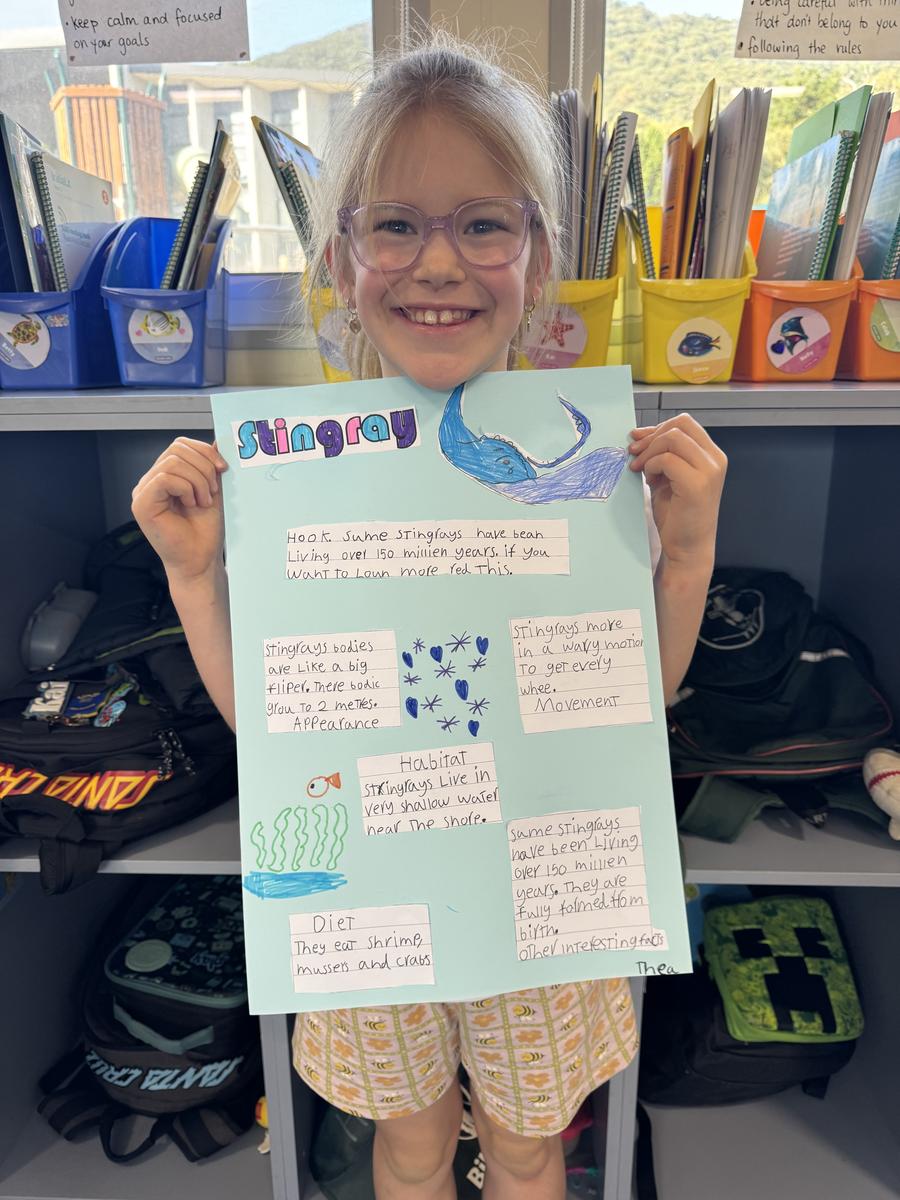 • keep calm and focused
on your goals
• being careful with
that don't belong to you
following the rules
Stingray
Hook. Sume Stingrays have bean
Living over 150 millien years. if you
want to Loun more red This.
Stingrays bodies
are Like a big
fliper. There bodic
grow to 2 metres.
Appearance
Stingrays move
in a wavy motion
To get every
whee.
Movement
Habitat
Stingrays Live in
very shallow water
near The shore.
Same stingrays
have been Living
over 150 millien
years. They are
fully formed from
birth.
other interesting facts
Diet
They eat shrimp,
mussers and crabs
Thea
Kai
SANTA CRUZ
SANTA CRUZ